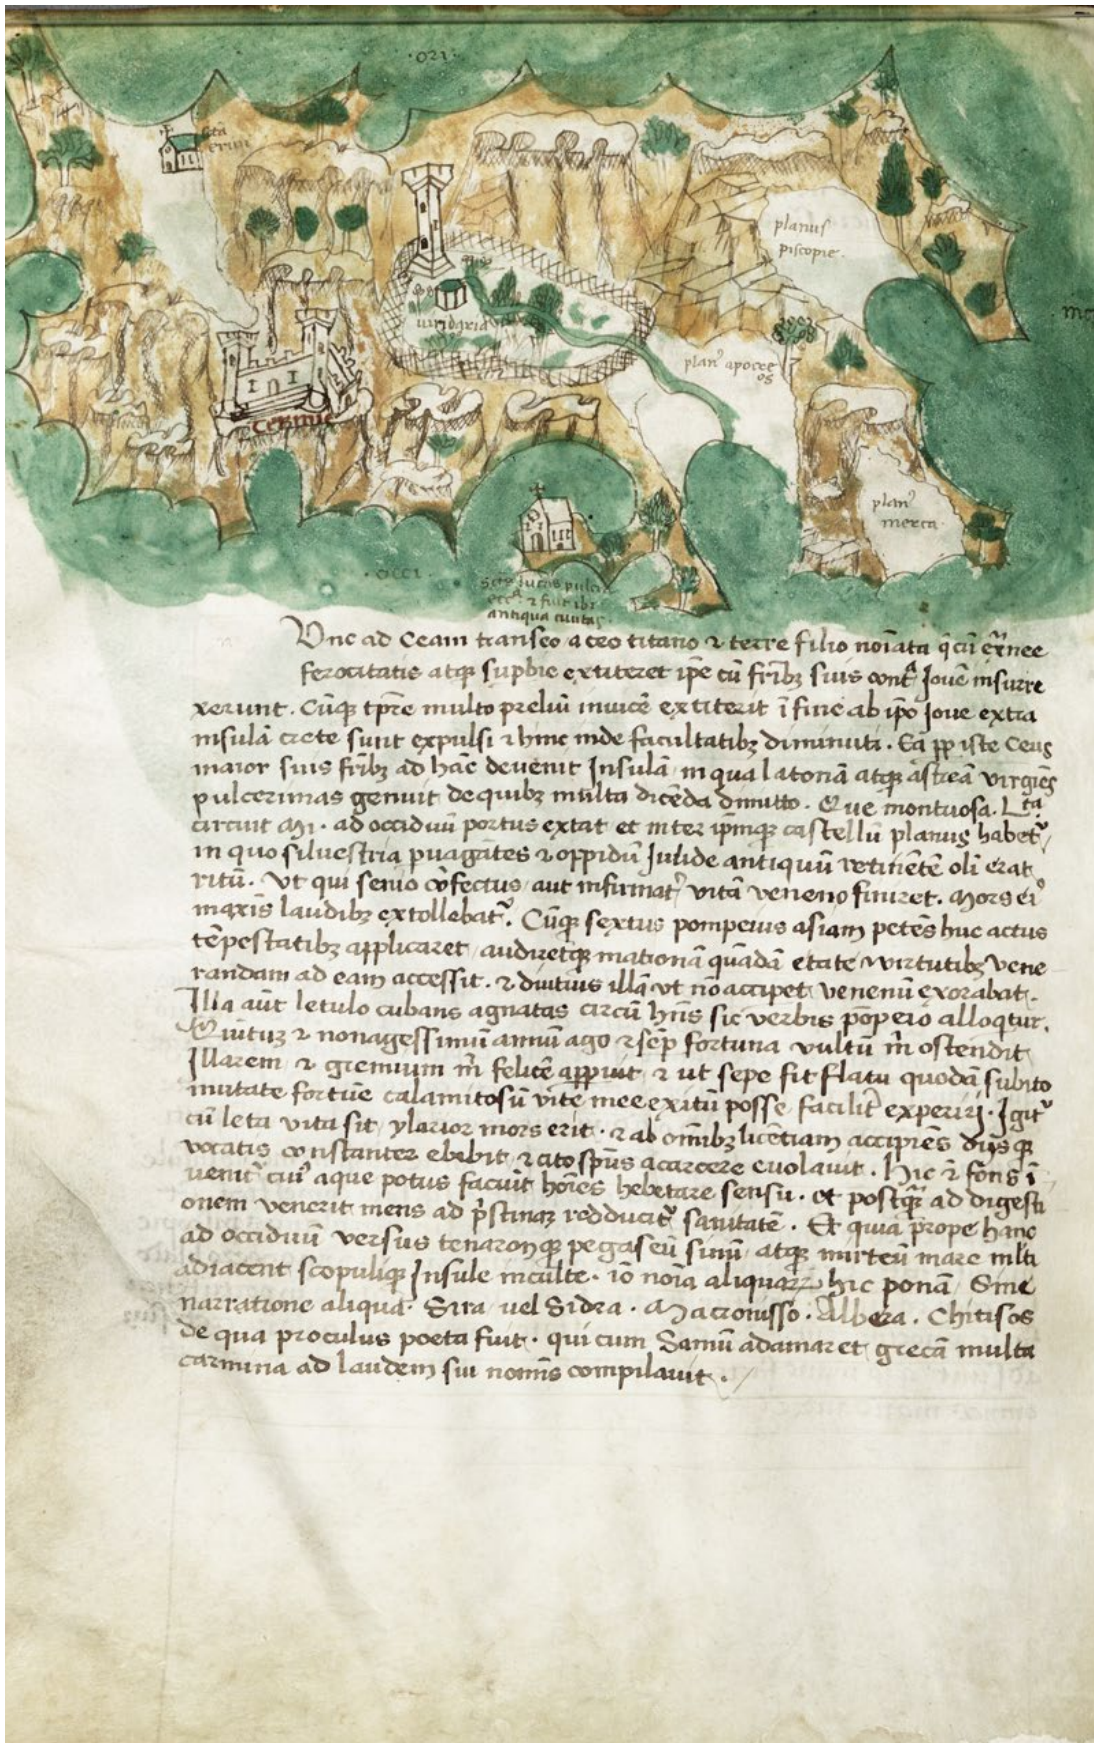 ·ORI·
planus
piscopie·
uiridaria
plan9 apocre
os
plan9
merca·
·OCCI·
antiqua ciuitas
Vnc ad Ceam transeo a ceo titano ⁊ terre filio noīata q̄ cū
ferocitatis atq; supbie extiteret ip̄e cū fr̄ibȝ suis contᵃ Jouē insurre
xerunt. Cūq; tp̄re multo preliū inuicē extiterit ī fine ab ip̄o Joue extra
insulā crete sunt expulsi ⁊ hinc inde facultatibȝ diminuti. Eā pp iste Ceus
maior suis fr̄ibȝ ad hāc deuenit Insulā in qua latonā atq; astreā virgiēs
pulcerimas genuit de quibȝ multa dicēda dimitto. Que montuosa.
circuit m̄. ad occiduū portus extat et inter ip̄mq; castellū planus habet᷒
in quo siluestria puagātes ⁊ oppidū Julide antiquū retinētē oli erat
ritū. Vt qui senio cōfectus aut infirmat᷒ vitā veneno finiret. Mors ei9
maxīs laudibȝ extollebat᷒. Cūq; sextus pompeius asiam petēs huc actus
tēpestatibȝ applicaret audiretq; mationā quādā etate ⁊ virtutibȝ vene
randam ad eam accessit. ⁊ diutius illā vt nō accipet venenū exorabat.
Illa aūt letulo cubans agnatas circū hn̄s sic verbis pōpeio alloqtur.
Quītuȝ ⁊ nonagessimū annū ago ⁊ sēp fortuna vultū m̄ ostendit
Illarem ⁊ gremium m̄ felicē appuit ⁊ ut sepe fit flatu quodā subito
mutate fortūe calamitosū vite mee exitū posse facilit᷒ experiri. Igit᷒
cū leta vita sit ylarior mors erit. ⁊ ab om̄ibȝ licentiam accipiēs diisq;
vocatis constanter ebibit ⁊ cito spūs a carcere euolauit. Hic ē fons ī
uenit᷒ cui9 aque potus facuīt hoīes hebetare sensu. et postq̄ȝ ad digesti
onem venerit mens ad pristinaȝ redducit᷒ sanitatē. Et quia prope hanc
ad occiduū versus tenaronq; pegaseū sinū atq; mirteū mare mlti
adiacent scopuliq; Insule inculte. iō noīa aliquarꝝ hic ponā Sine
narratione aliqua. Sira uel Sidra. Macronisso. Albera. Chitisos
de qua proculus poeta fuit. qui cum Samū adamaret grecā multa
carmina ad laudem sui nomīs compilauit.